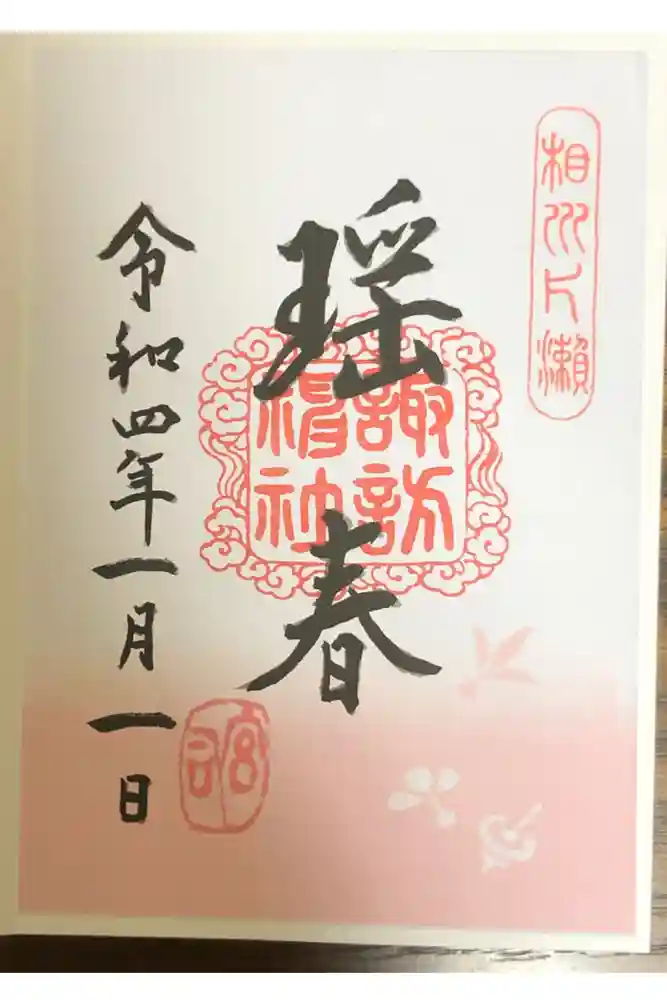 相州片瀬
瑶春
諏訪
神社
令和四年一月一日
宮司